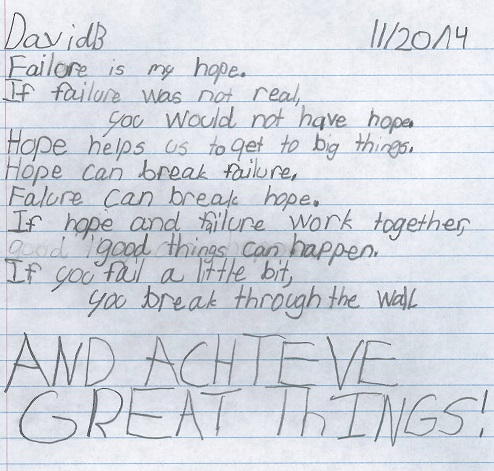 DavidB 11/20/14
Failore is my hope.
If failure was not real,
you would not have hope.
Hope helps us to get to big things.
Hope can break failure,
Falure can break hope.
If hope and failure work together,
good good things can happen.
If you fail a little bit,
you break through the wall
AND ACHIEVE
GREAT ThINGS!